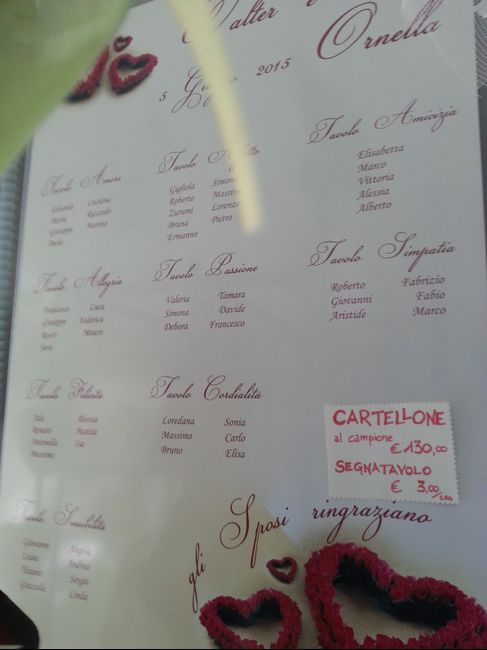 Walter
Ornella
5 Giugno 2015
Tavolo Amore
Luciana
Riccardo
Giuseppe Marino
Paola
Tavolo
Gigliola Simona
Roberto Massimo
Zurami Lorenzo
Bruna Pietro
Ermanno
Tavolo Amicizia
Elisabetta
Marco
Vittoria
Alessia
Alberto
Tavolo Allegria
Francesco Luca
Giuseppe Federica
Rocco Mauro
Tavolo Passione
Valeria Tamara
Simona Davide
Debora Francesco
Tavolo Simpatia
Roberto Fabrizio
Giovanni Fabio
Aristide Marco
Tavolo Felicità
Ada Alessia
Renato Marta
Antonella Isa
Massimo
Tavolo Cordialità
Loredana Sonia
Massimo Carlo
Bruno Elisa
CARTELLONE
al campione
€ 130,00
SEGNATAVOLO
€ 3,00/CAD
Tavolo Sensibilità
Giovanni Angela
Luana Andrea
Tiziano Sergio
Graziella Linda
gli Sposi ringraziano